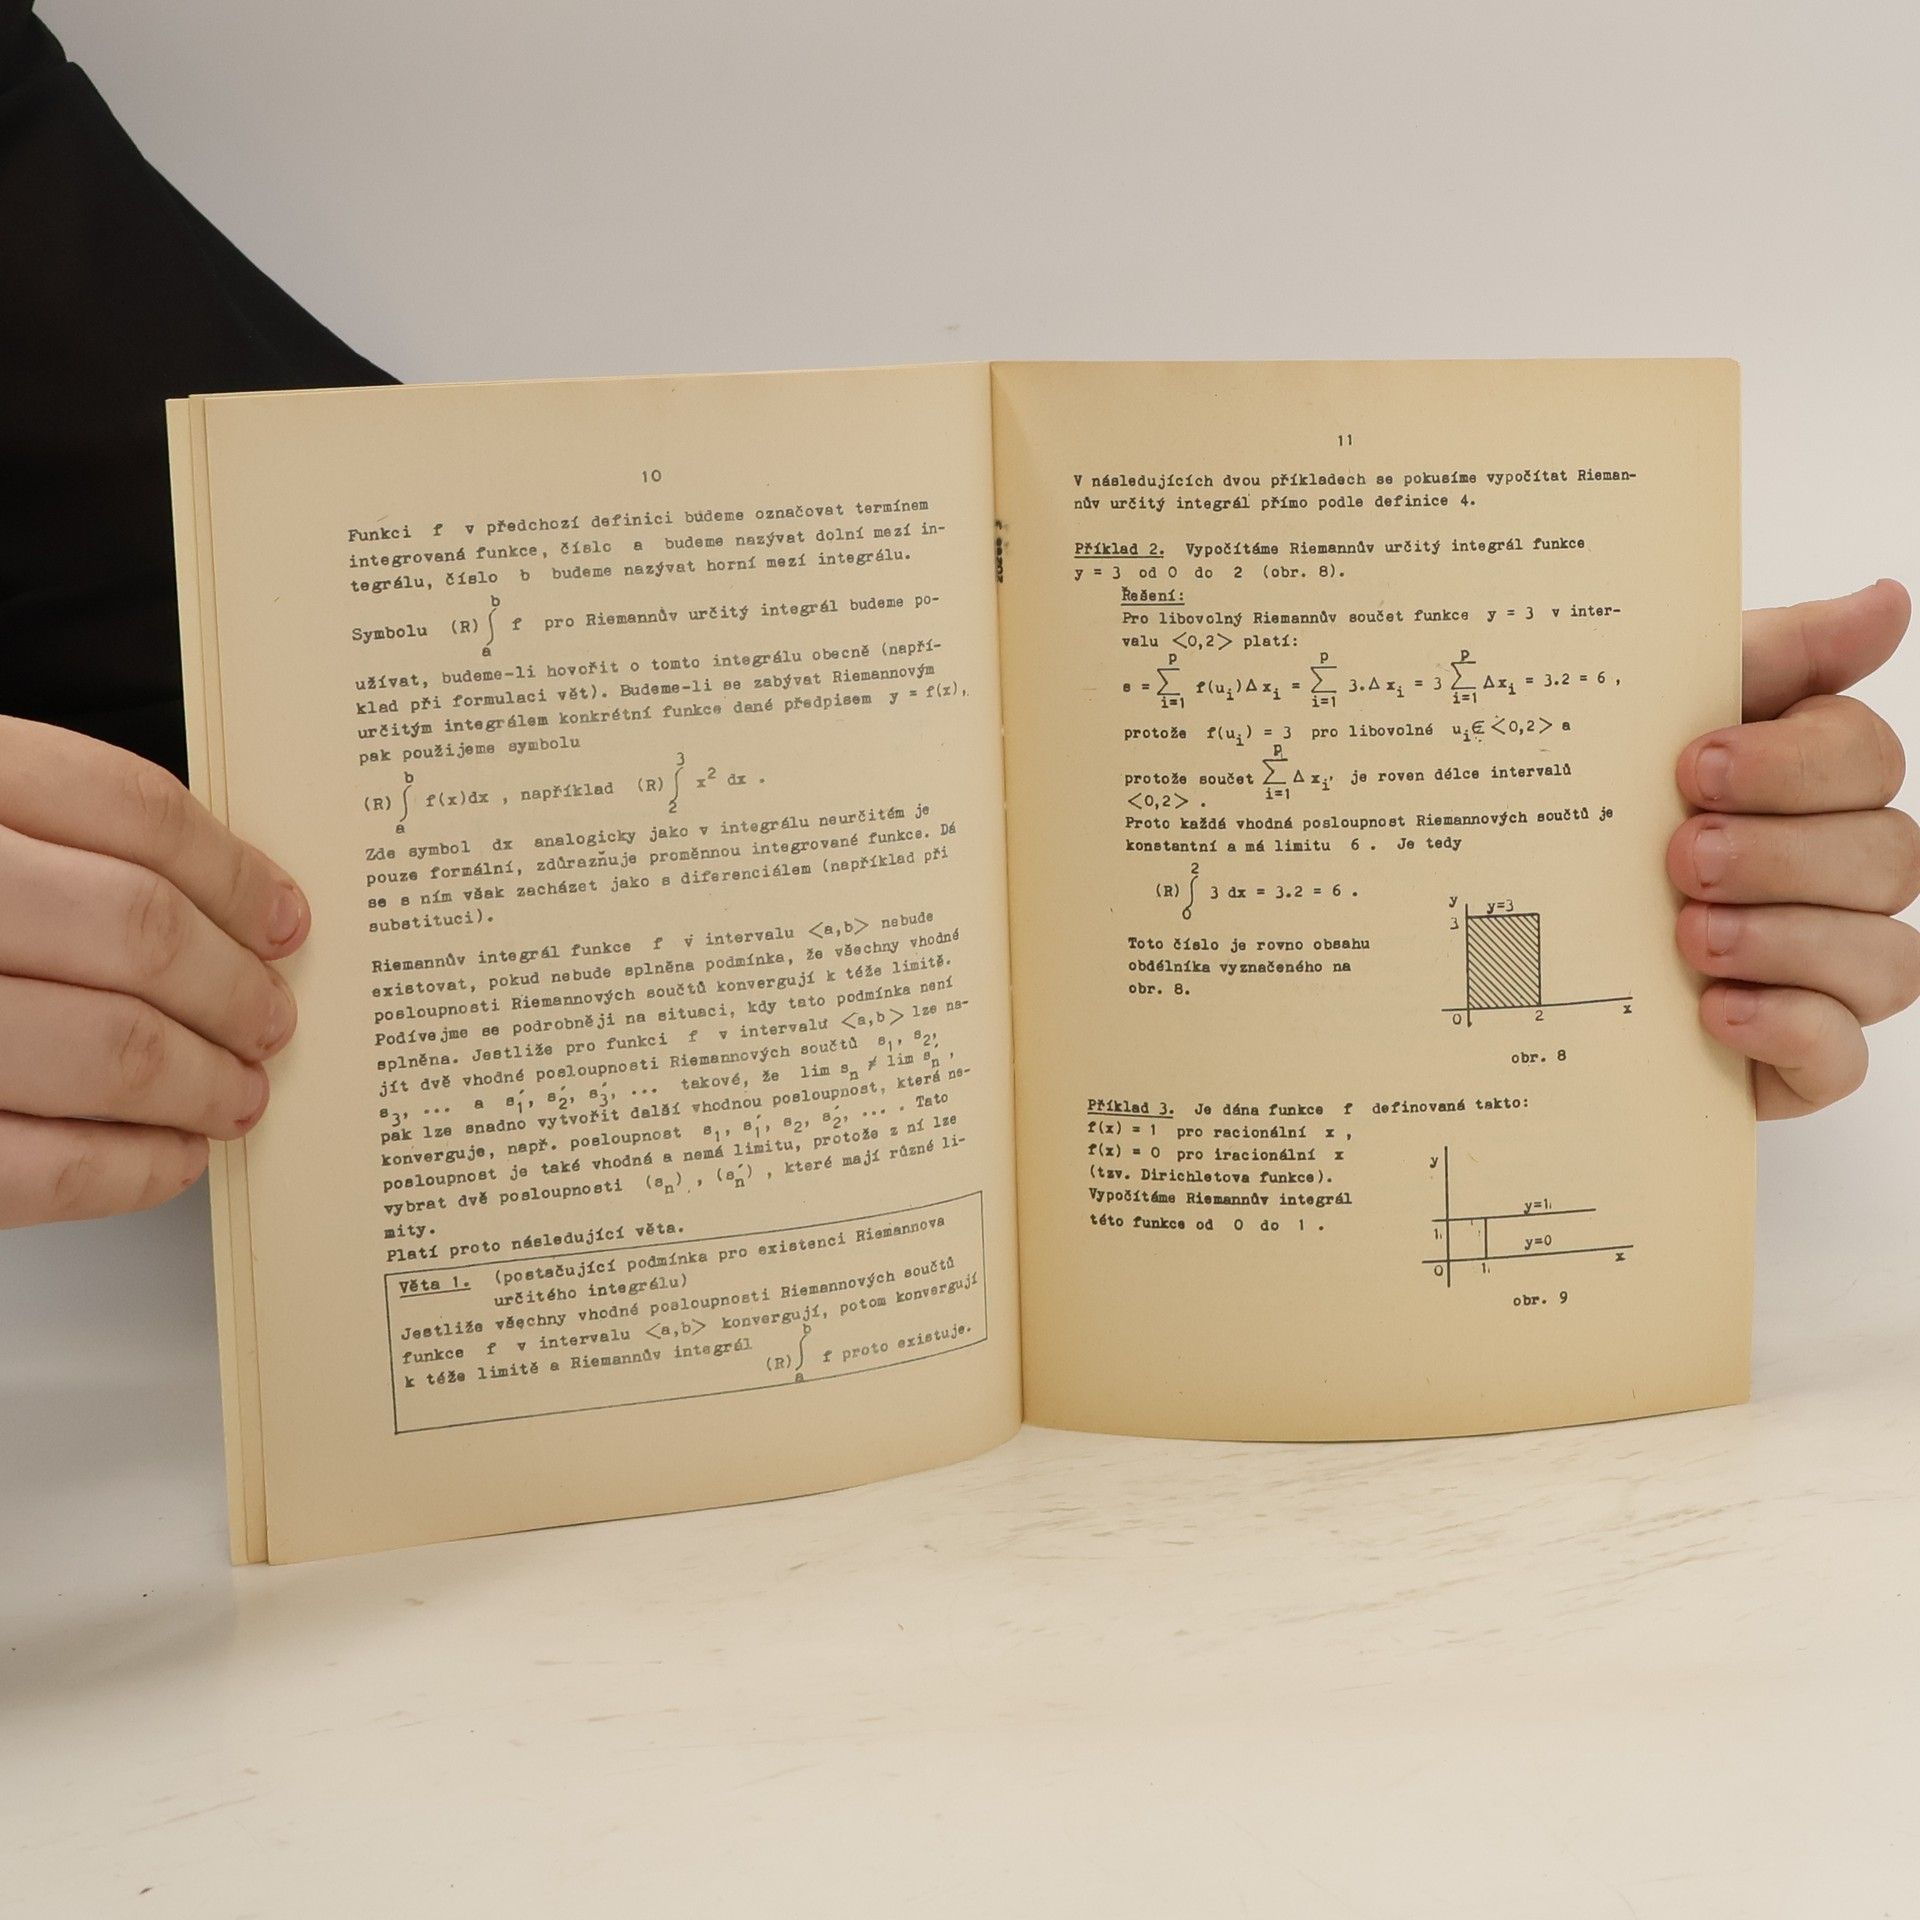 10
Funkci f v předchozí definici budeme označovat termínem
integrovaná funkce, číslo a budeme nazývat dolní mezí in-
tegrálu, číslo b budeme nazývat horní mezí integrálu.
Symbolu (R) ∫_a^b f pro Riemannův určitý integrál budeme po-
užívat, budeme-li hovořit o tomto integrálu obecně (napří-
klad při formulaci vět). Budeme-li se zabývat Riemannovým
určitým integrálem konkrétní funkce dané předpisem y = f(x),
pak použijeme symbolu
(R) ∫_a^b f(x)dx , například (R) ∫_2^3 x² dx .
Zde symbol dx analogicky jako v integrálu neurčitém je
pouze formální, zdůrazňuje proměnnou integrované funkce. Dá
se s ním však zacházet jako s diferenciálem (například při
substituci).
Riemannův integrál funkce f v intervalu <a,b> nebude
existovat, pokud nebude splněna podmínka, že všechny vhodné
posloupnosti Riemannových součtů konvergují k téže limitě.
Podívejme se podrobněji na situaci, kdy tato podmínka není
splněna. Jestliže pro funkci f v intervalu <a,b> lze na-
jít dvě vhodné posloupnosti Riemannových součtů s₁, s₂,
s₃, ... a s₁′, s₂′, s₃′, ... takové, že lim sₙ ≠ lim sₙ′ ,
pak lze snadno vytvořit další vhodnou posloupnost, která ne-
konverguje, např. posloupnost s₁, s₁′, s₂, s₂′, ... . Tato
posloupnost je také vhodná a nemá limitu, protože z ní lze
vybrat dvě posloupnosti (sₙ) , (sₙ′) , které mají různé li-
mity.
Platí proto následující věta.
Věta 1. (postačující podmínka pro existenci Riemannova
určitého integrálu)
Jestliže všechny vhodné posloupnosti Riemannových součtů
funkce f v intervalu <a,b> konvergují, potom konvergují
k téže limitě a Riemannův integrál (R) ∫_a^b f proto existuje.
11
V následujících dvou příkladech se pokusíme vypočítat Rieman-
nův určitý integrál přímo podle definice 4.
Příklad 2. Vypočítáme Riemannův určitý integrál funkce
y = 3 od 0 do 2 (obr. 8).
Řešení:
Pro libovolný Riemannův součet funkce y = 3 v inter-
valu <0,2> platí:
s = ∑_{i=1}^p f(uᵢ)Δxᵢ = ∑_{i=1}^p 3.Δxᵢ = 3 ∑_{i=1}^p Δxᵢ = 3.2 = 6 ,
protože f(uᵢ) = 3 pro libovolné uᵢ∈<0,2> a
protože součet ∑_{i=1}^p Δxᵢ, je roven délce intervalů
<0,2> .
Proto každá vhodná posloupnost Riemannových součtů je
konstantní a má limitu 6 . Je tedy
(R) ∫_0^2 3 dx = 3.2 = 6 .
Toto číslo je rovno obsahu
obdélníka vyznačeného na
obr. 8.
y
y=3
3
0
2
x
obr. 8
Příklad 3. Je dána funkce f definovaná takto:
f(x) = 1 pro racionální x ,
f(x) = 0 pro iracionální x
(tzv. Dirichletova funkce).
Vypočítáme Riemannův integrál
této funkce od 0 do 1 .
y
y=1
1
y=0
0
1
x
obr. 9